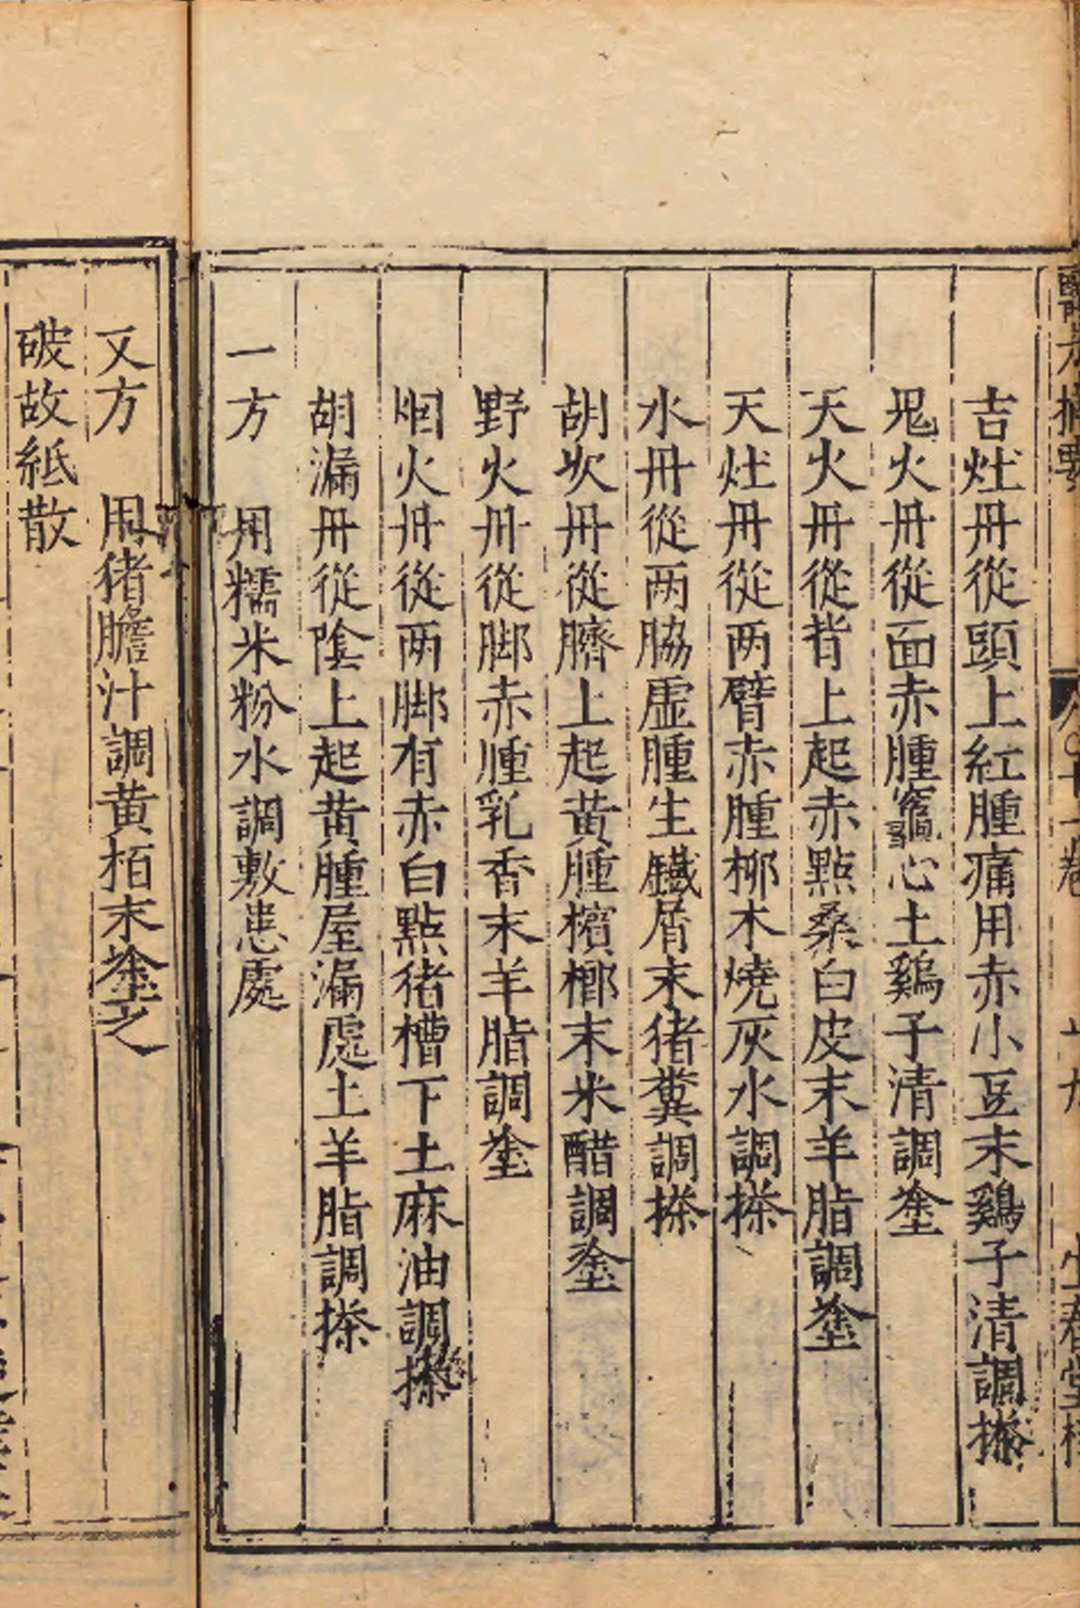 吉灶丹從頭上紅腫痛用赤小豆末鷄子清調搽
鬼火丹從面赤腫竈心土鷄子清調塗
天火丹從背上起赤點桑白皮末羊脂調塗
天灶丹從两臂赤腫柳木燒灰水調搽
水丹從两脇虚腫生鐵屑末猪糞調搽
胡吹丹從臍上起黄腫檳榔末米醋調塗
野火丹從脚赤腫乳香末羊脂調塗
烟火丹從两脚有赤白點猪槽下土麻油調搽
胡漏丹從陰上起黄腫屋漏處土羊脂調搽
一方 用糯米粉水調敷患處
又方 用猪膽汁調黄栢末塗之
破故紙散